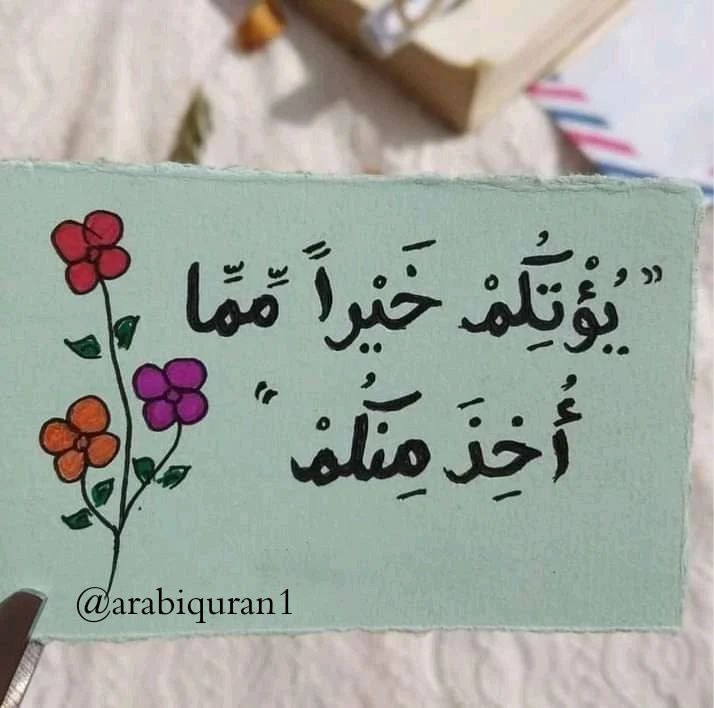 "يُؤْتِكُمْ خَيْراً مِّمَّا
أُخِذَ مِنكُمْ"
@arabiquran1